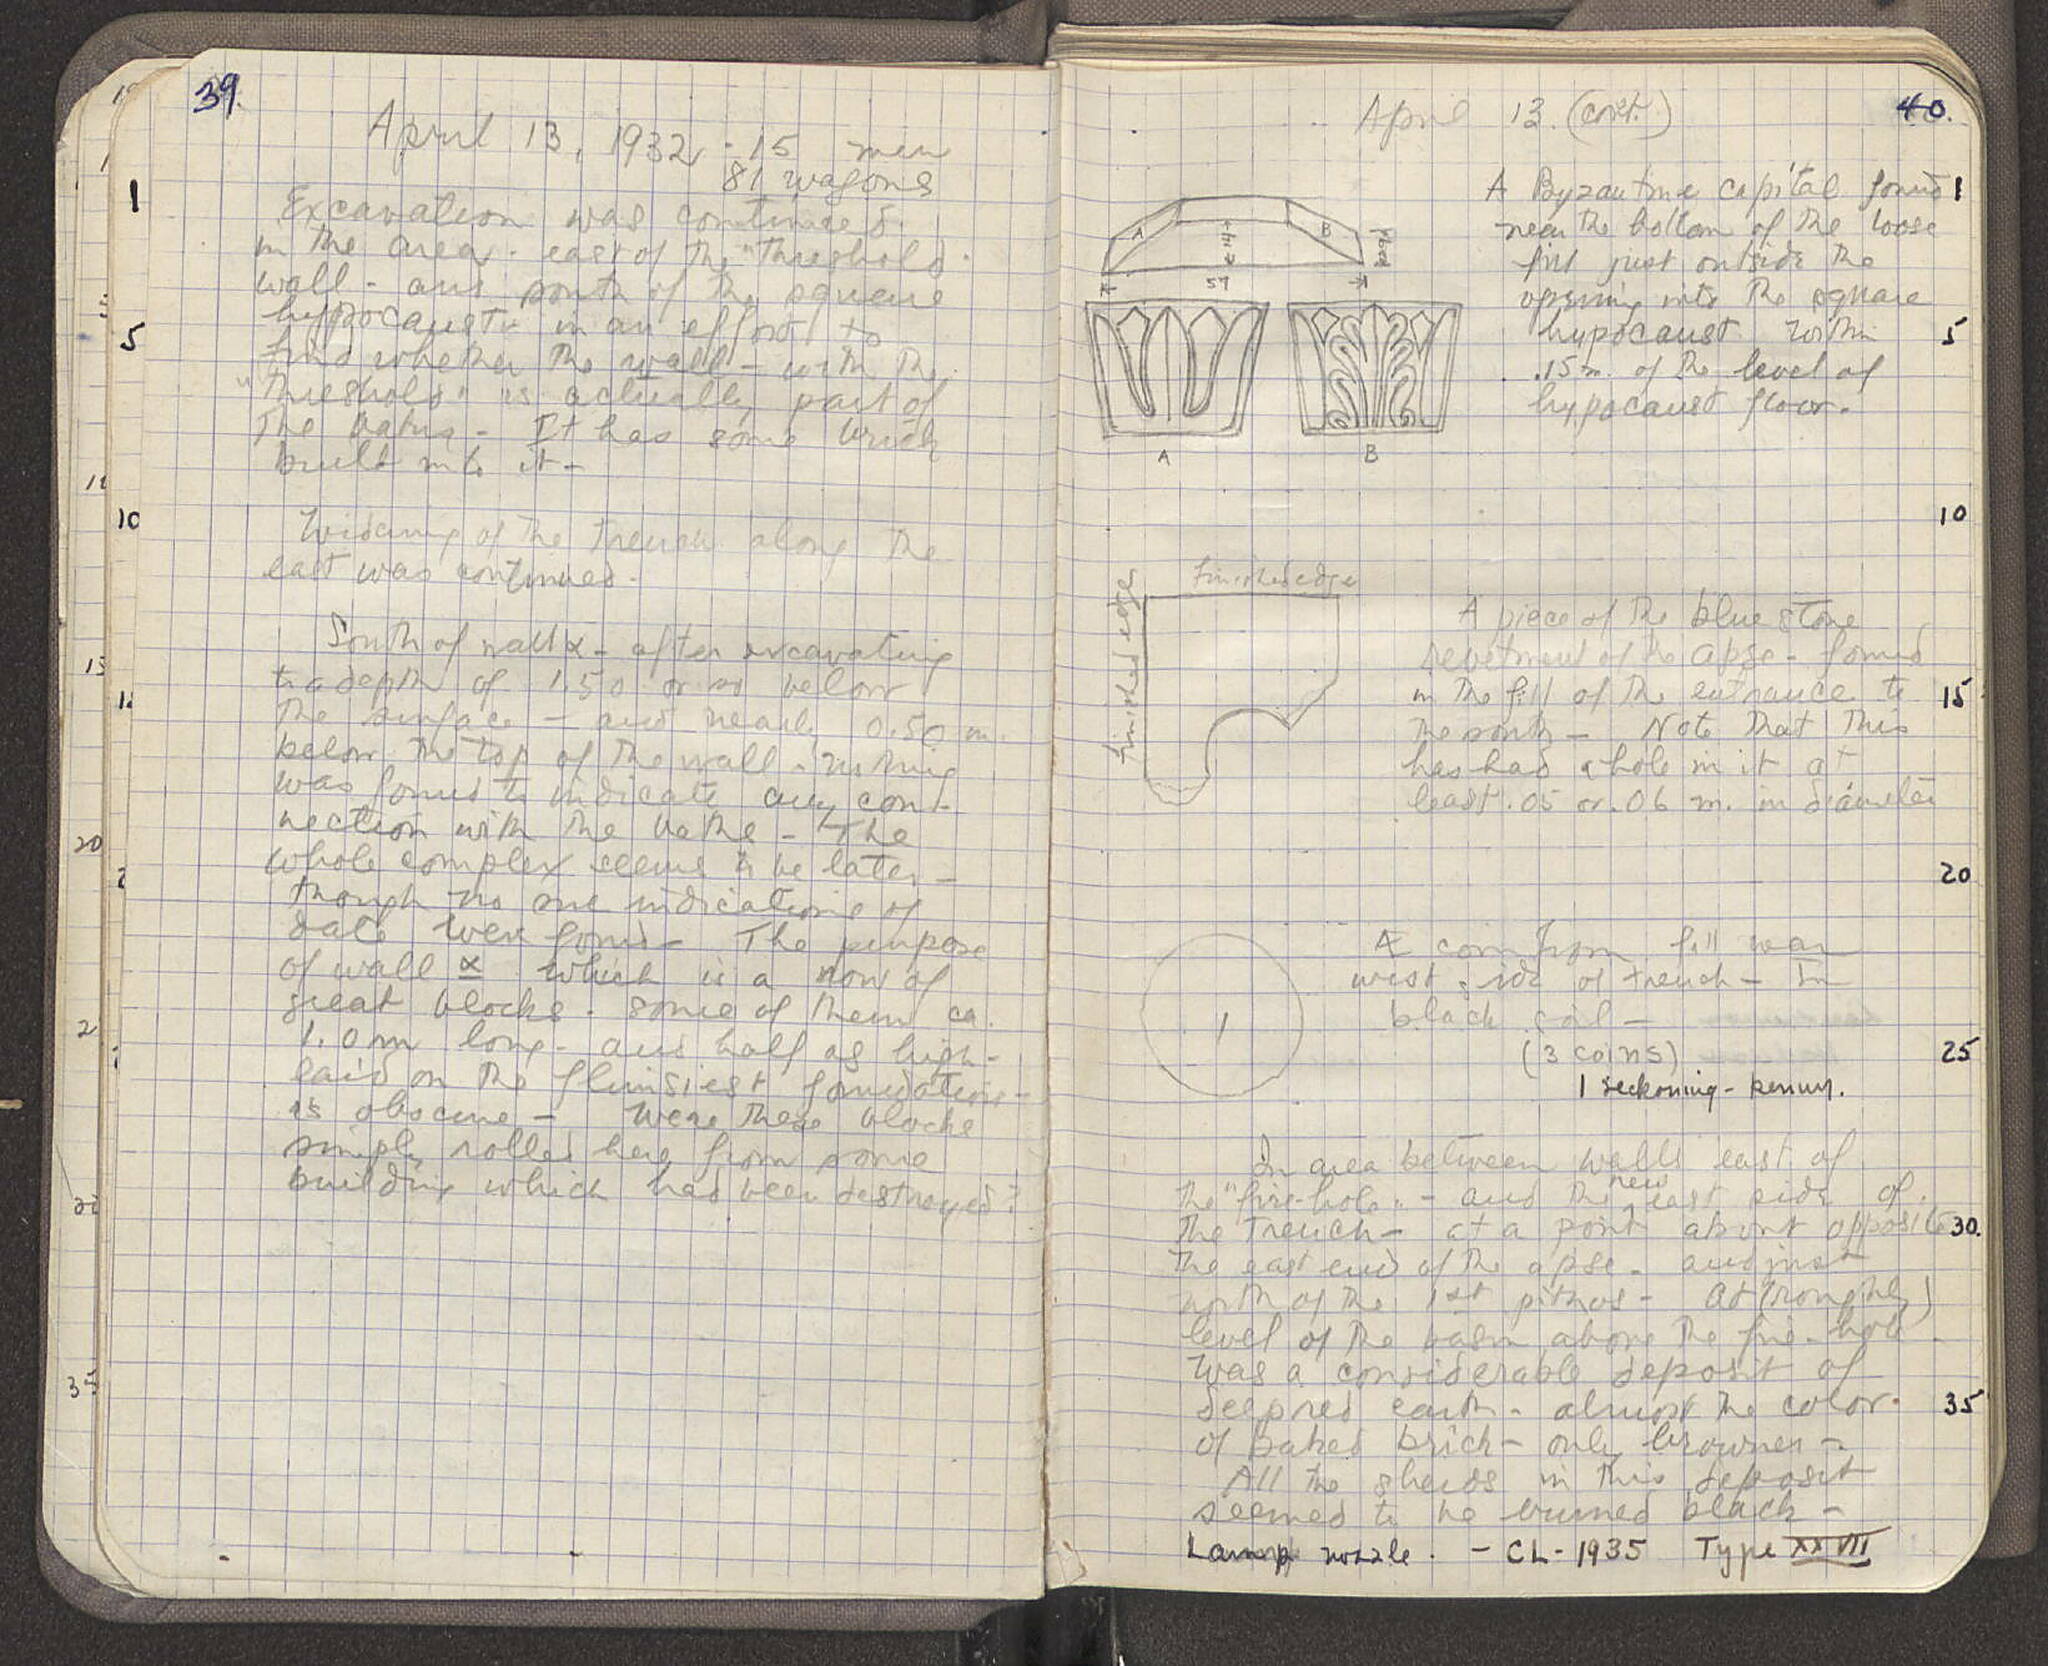 39.
April 13, 1932 - 15 men
81 wagons
Excavation was continued
in the area. east of the "threshold"
wall - and south of the square
hypocaust in an effort to
find whether the wall - with the
"threshold" is actually part of
the baths - It has some brick
built into it -
Widening of the trench along the
east was continued.
South of wall α - after excavating
to a depth of 1.50 or so below
the surface - and nearly 0.50 m.
below the top of the wall - nothing
was found to indicate any con-
nection with the baths - The
whole complex seems to be later -
though no sure indications of
date were found - The purpose
of wall α which is a row of
great blocks - some of them ca.
1.0 m long - and half as high -
laid on the flimsiest foundations -
is obscure - Were these blocks
simply rolled here from some
building which had been destroyed?
1
5
10
40.
April 13. (cont.)
A Byzantine capital found
near the bottom of the loose
fill just outside the
opening into the square
hypocaust within
.15 m. of the level of
hypocaust floor.
A
B
57
A
B
finished edge
finished edge
A piece of the blue stone
revetment of the apse - found
in the fill of the entrance to
the south - Note that this
has had a hole in it at
least .05 or .06 m. in diameter
1
Æ coin from fill near
west side of trench - In
black soil -
(3 coins)
1 reckoning - penny.
In area between walls east of
the "fire-hole" - and the new east side of
the trench - at a point about opposite
the east end of the apse - and just
north of the 1st pithos - At (roughly)
level of the basin above the fire-hole
was a considerable deposit of
deep red earth - almost the color
of baked brick - only browner -
All the sherds in this deposit
seemed to be burned black -
Lamp nozzle. - CL-1935 Type XXVIII
1
5
10
15
20
25
30.
35